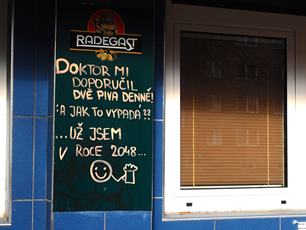 RADEGAST
DOKTOR MI
DOPORUČIL
DVĚ PIVA DENNĚ!
:A JAK TO VYPADÁ??
...UŽ JSEM
V ROCE 2048...